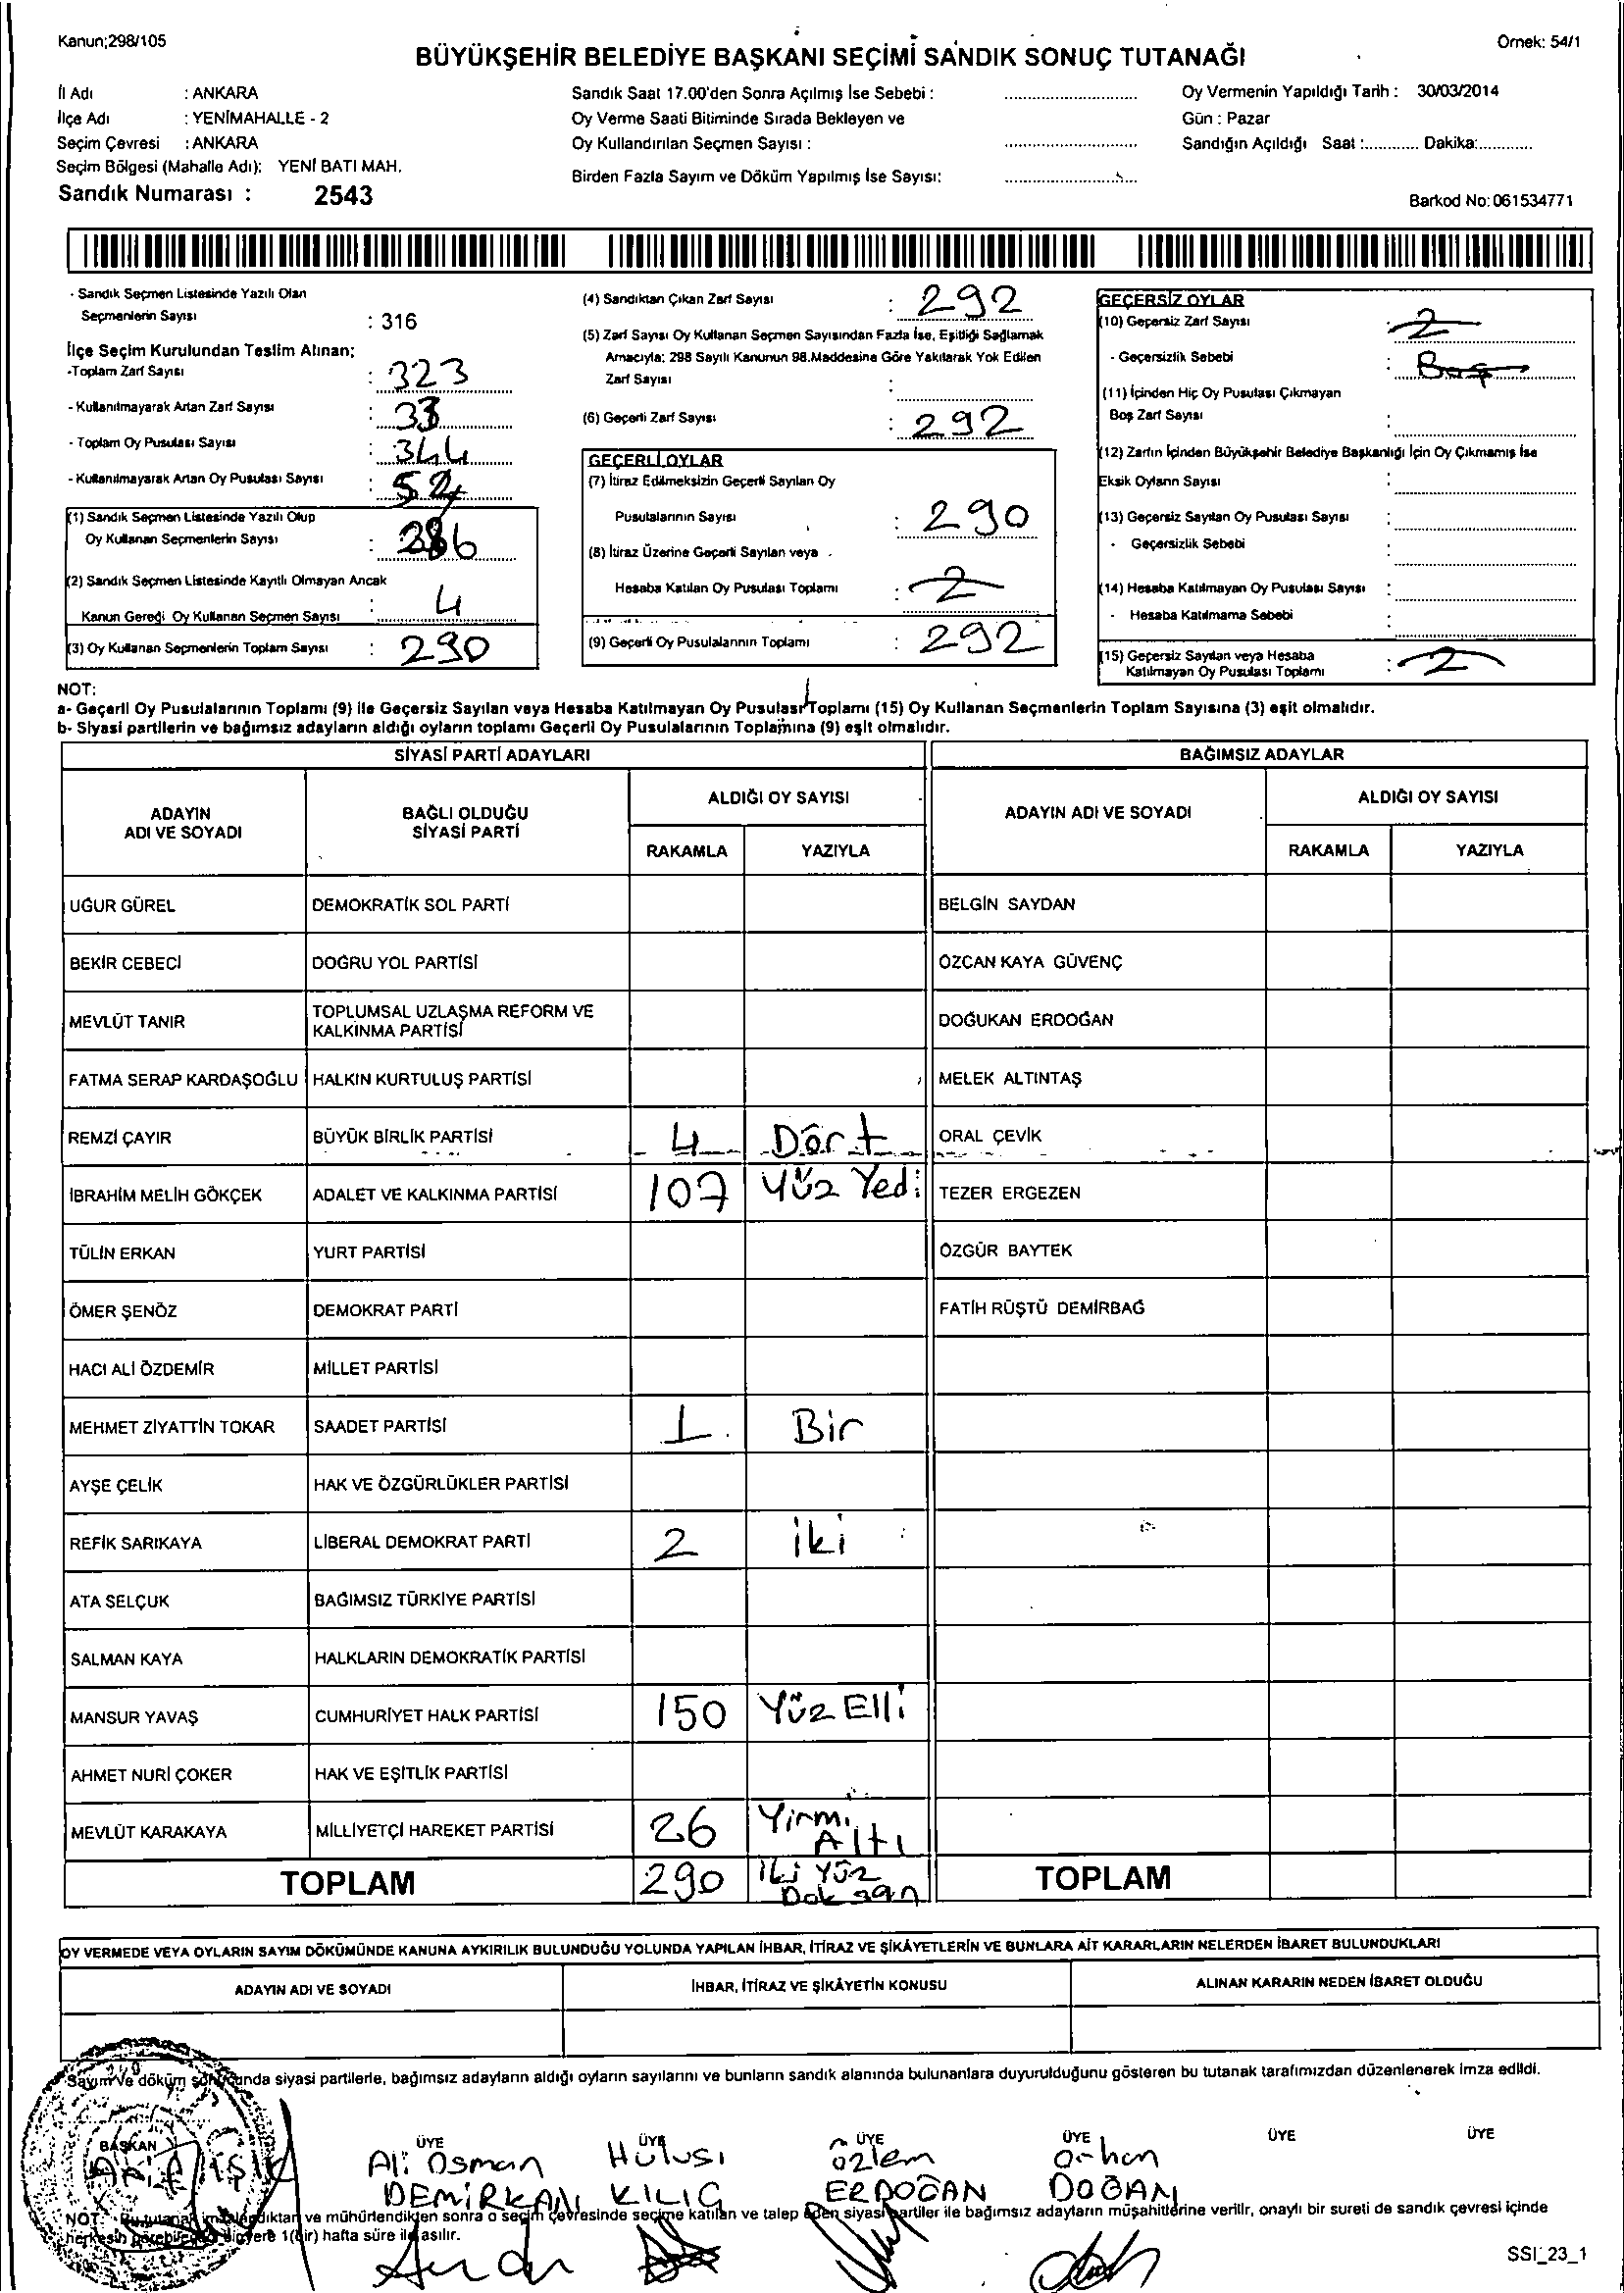 Kanun;298/105
Örnek: 54/1
BÜYÜKŞEHİR BELEDİYE BAŞKANI SEÇİMİ SANDIK SONUÇ TUTANAĞI
İl Adı : ANKARA
İlçe Adı : YENİMAHALLE - 2
Seçim Çevresi : ANKARA
Seçim Bölgesi (Mahalle Adı): YENİ BATI MAH.
Sandık Numarası : 2543
Sandık Saat 17.00'den Sonra Açılmış İse Sebebi :
Oy Verme Saati Bitiminde Sırada Bekleyen ve
Oy Kullandırılan Seçmen Sayısı :
Birden Fazla Sayım ve Döküm Yapılmış İse Sayısı:
Oy Vermenin Yapıldığı Tarih : 30/03/2014
Gün : Pazar
Sandığın Açıldığı Saat :............ Dakika:............
Barkod No: 061534771
- Sandık Seçmen Listesinde Yazılı Olan
Seçmenlerin Sayısı : 316
İlçe Seçim Kurulundan Teslim Alınan;
-Toplam Zarf Sayısı : 323
- Kullanılmayarak Artan Zarf Sayısı : 33
- Toplam Oy Pusulası Sayısı : 344
- Kullanılmayarak Artan Oy Pusulası Sayısı : 54
(1) Sandık Seçmen Listesinde Yazılı Olup
Oy Kullanan Seçmenlerin Sayısı : 286
(2) Sandık Seçmen Listesinde Kayıtlı Olmayan Ancak
Kanun Gereği Oy Kullanan Seçmen Sayısı : 4
(3) Oy Kullanan Seçmenlerin Toplam Sayısı : 290
(4) Sandıktan Çıkan Zarf Sayısı : 292
(5) Zarf Sayısı Oy Kullanan Seçmen Sayısından Fazla İse, Eşitliği Sağlamak
Amacıyla; 298 Sayılı Kanunun 98.Maddesine Göre Yakılarak Yok Edilen
Zarf Sayısı :
(6) Geçerli Zarf Sayısı : 292
GEÇERLİ OYLAR
(7) İtiraz Edilmeksizin Geçerli Sayılan Oy
Pusulalarının Sayısı : 290
(8) İtiraz Üzerine Geçerli Sayılan veya
Hesaba Katılan Oy Pusulası Toplamı : 2
(9) Geçerli Oy Pusulalarının Toplamı : 292
GEÇERSİZ OYLAR
(10) Geçersiz Zarf Sayısı : 2
- Geçersizlik Sebebi : Boş
(11) İçinden Hiç Oy Pusulası Çıkmayan
Boş Zarf Sayısı :
(12) Zarfın İçinden Büyükşehir Belediye Başkanlığı İçin Oy Çıkmamış İse
Eksik Oyların Sayısı :
(13) Geçersiz Sayılan Oy Pusulası Sayısı :
- Geçersizlik Sebebi :
(14) Hesaba Katılmayan Oy Pusulası Sayısı :
- Hesaba Katılmama Sebebi :
(15) Geçersiz Sayılan veya Hesaba
Katılmayan Oy Pusulası Toplamı : 2
NOT:
a- Geçerli Oy Pusulalarının Toplamı (9) ile Geçersiz Sayılan veya Hesaba Katılmayan Oy Pusulası Toplamı (15) Oy Kullanan Seçmenlerin Toplam Sayısına (3) eşit olmalıdır.
b- Siyasi partilerin ve bağımsız adayların aldığı oyların toplamı Geçerli Oy Pusulalarının Toplamına (9) eşit olmalıdır.
SİYASİ PARTİ ADAYLARI BAĞIMSIZ ADAYLAR
ADAYIN ADI VE SOYADI
BAĞLI OLDUĞU SİYASİ PARTİ
ALDIĞI OY SAYISI
RAKAMLA YAZIYLA
ADAYIN ADI VE SOYADI
ALDIĞI OY SAYISI
RAKAMLA YAZIYLA
UĞUR GÜREL DEMOKRATİK SOL PARTİ BELGİN SAYDAN
BEKİR CEBECİ DOĞRU YOL PARTİSİ ÖZCAN KAYA GÜVENÇ
MEVLÜT TANIR TOPLUMSAL UZLAŞMA REFORM VE KALKINMA PARTİSİ DOĞUKAN ERDOĞAN
FATMA SERAP KARDAŞOĞLU HALKIN KURTULUŞ PARTİSİ MELEK ALTINTAŞ
REMZİ ÇAYIR BÜYÜK BİRLİK PARTİSİ 4 Dört ORAL ÇEVİK
İBRAHİM MELİH GÖKÇEK ADALET VE KALKINMA PARTİSİ 107 Yüz Yedi TEZER ERGEZEN
TÜLİN ERKAN YURT PARTİSİ ÖZGÜR BAYTEK
ÖMER ŞENÖZ DEMOKRAT PARTİ FATİH RÜŞTÜ DEMİRBAĞ
HACI ALİ ÖZDEMİR MİLLET PARTİSİ
MEHMET ZİYATTİN TOKAR SAADET PARTİSİ 1 Bir
AYŞE ÇELİK HAK VE ÖZGÜRLÜKLER PARTİSİ
REFİK SARIKAYA LİBERAL DEMOKRAT PARTİ 2 iki
ATA SELÇUK BAĞIMSIZ TÜRKİYE PARTİSİ
SALMAN KAYA HALKLARIN DEMOKRATİK PARTİSİ
MANSUR YAVAŞ CUMHURİYET HALK PARTİSİ 150 Yüz Elli
AHMET NURİ ÇOKER HAK VE EŞİTLİK PARTİSİ
MEVLÜT KARAKAYA MİLLİYETÇİ HAREKET PARTİSİ 26 Yirmi Altı
TOPLAM 290 iki Yüz Doksan TOPLAM
OY VERMEDE VEYA OYLARIN SAYIM DÖKÜMÜNDE KANUNA AYKIRILIK BULUNDUĞU YOLUNDA YAPILAN İHBAR, İTİRAZ VE ŞİKÂYETLERİN VE BUNLARA AİT KARARLARIN NELERDEN İBARET BULUNDUKLARI
ADAYIN ADI VE SOYADI İHBAR, İTİRAZ VE ŞİKÂYETİN KONUSU ALINAN KARARIN NEDEN İBARET OLDUĞU
Sayım ve döküm sonucunda siyasi partilerle, bağımsız adayların aldığı oyların sayılarını ve bunların sandık alanında bulunanlara duyurulduğunu gösteren bu tutanak tarafımızdan düzenlenerek imza edildi.
BAŞKAN ÜYE ÜYE ÜYE ÜYE ÜYE ÜYE
Ali Osman Hulusi özlem orhan
DEMİRKAN KILIÇ ERDOĞAN DOĞAN
NOT: Bu tutanak imzalandıktan ve mühürlendikten sonra o seçim çevresinde seçime katılan ve talep eden siyasi partiler ile bağımsız adayların müşahitlerine verilir, onaylı bir sureti de sandık çevresi içinde
herkesin görebileceği bir yere 1(bir) hafta süre ile asılır.
SSİ_23_1